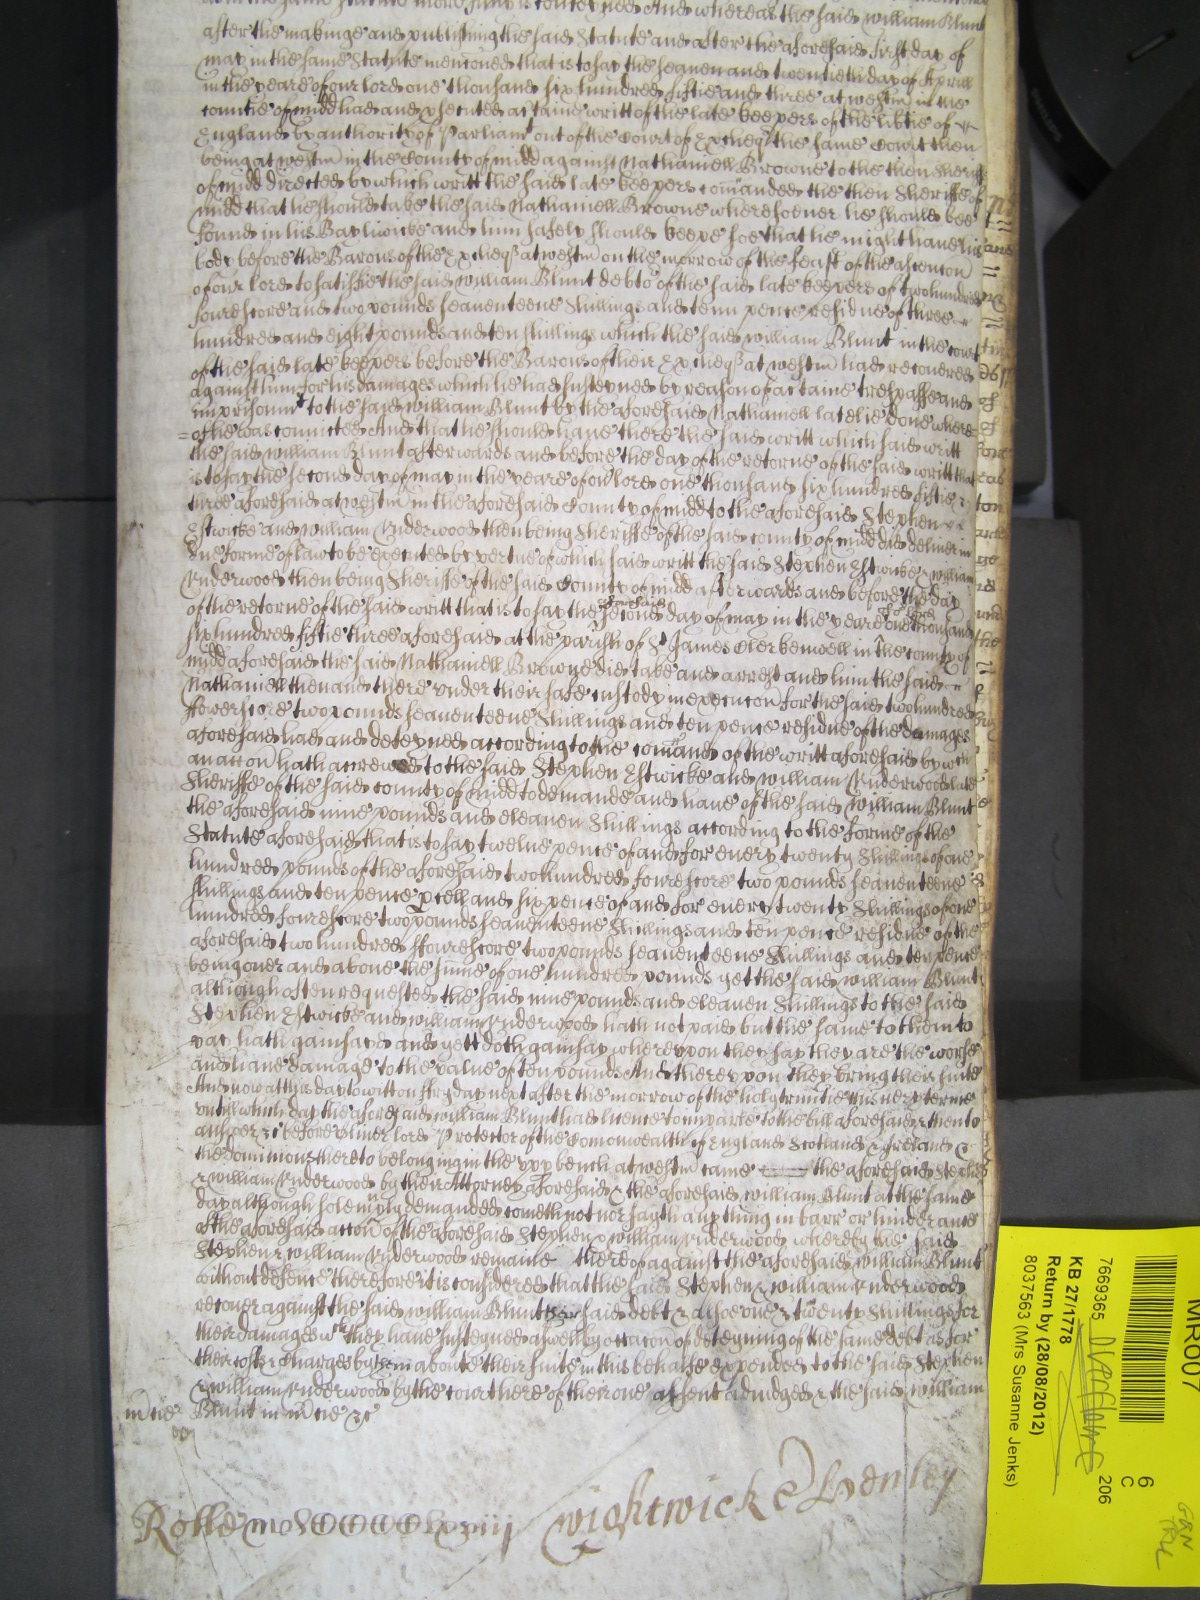 And whereas the said William Blunt
after the makinge and publishing the said Statute and after the aforesaid first day of
may in the same Statute menconed that is to say the seaven and twentieth day of Aprill
in the yeare of our lord one thousand six hundred fiftie and three at westm in the
countie of midd had and prosecuted a certaine writt of the late keepers of the libtie of
England by authority of Parliamt out of the Court of Exchequer the same Court then
being at westm in the County of midd against Nathaniell Browne to the then Sheriffe
of midd directed by which writt the said late keepers comanded the then Sheriffe of
midd that he should take the said Nathaniell Browne wheresoever hee should bee
found in his Baylwicke and him safely should keepe soe that he might have his
body before the Barons of the Exchequer at westm on the morrow of the feast of the ascencon
of our lord to satisfie the said William Blunt debtor of the said late keepers of twohundred
fourescore and two pounds seaventeene Shillings and tenn pence residue of three
hundred and eight pounds and ten shillings which the said William Blunt in the court
of the said late keepers before the Barons of their Excheqr at westm had recovered
against him for his damages which he had susteyned by reason of a certaine trespasse and
imprisonmt to the said William Blunt by the aforesaid Nathaniell lately done where
of he was convicted And that he should have there the said writt which said writt
the said William Blunt afterwards and before the day of the retorne of the said writt that
is to say the second day of may in the yeare of our lord one thousand six hundred fiftie &
three aforesaid at westm in the aforesaid County of midd to the aforesaid Stephen
Estwicke and William Underwood then being Sheriffe of the said county of midd did deliver in
due forme of law to be executed by vertue of which said writt the said Stephen Estwicke & William
Underwood then being Sheriffe of the said County of midd afterwards and before the day
of the retorne of the said writt that is to say the aforesaid second day of may in the yeare of or lord one thousand
six hundred fiftie three aforesaid at the parish of St James Clerkenwell in the county of
midd aforesaid the said Nathaniell Browne did take and arrest and him the said
Nathaniell then and there under their safe custody in execucon for the said twohundred
fowerscore two pounds seaventeene Shillings and ten pence residue of the damages
aforesaid had and deteyned according to the comand of the writt aforesaid by wch
an accon hath accrewed to the said Stephen Estwicke and William Underwood late
Sheriffe of the said county of Midd to demande and have of the said William Blunt
the aforesaid nine pounds and eleaven Shillings according to the forme of the
Statute aforesaid that is to say twelve pence of and for every twenty Shillings of one
hundred pounds of the aforesaid twohundred fourescore two pounds seaventeene
shillings and ten pence pcell and six pence of and for every twenty Shillings of one
hundred fourescore two pounds seaventeene Shillings and ten pence residue of the
aforesaid two hundred fourescore two pounds seaventeene Shillings and ten pence
being over and above the sume of one hundred pounds yet the said William Blunt
although often requested the said nine pounds and eleaven Shillings to the said
Stephen Estwicke and William Underwood hath not paid but the same to them to
pay hath gainsayd and yett doth gainsay whereupon they say they are the worse
and have damage to the value of ten pounds And thereupon they bring their suite
And now at this day to witt on ffryday next after the morrow of the holy trinitie this next terme
untill which day the aforesaid William Blunt had licence to imparle to the bill aforesaid & then to
answer &c before Oliver lord Protector of the Comonwealth of England Scotland & Ireland &
the dominions thereto belonging in the upp bench at westm came the aforesaid Stephen
& William Underwood by their Attorney aforesaid & the aforesaid William Blunt at the same
day although solemnly demanded cometh not nor sayth any thing in barr or hinderance
of the aforesaid accon of the aforesaid Stephen & William Underwood whereby the said
Stephen & William Underwood remaine thereof against the aforesaid William Blunt
without defence therefore it is considered that the said Stephen & William Underwood
recover against the said William Blunt their said debt & alsoe one & twenty Shillings for
their damages wch they have susteyned aswell by occacon of deteyning of the same debt as for
their costs & charges by them about their suite in this behalfe expended to the said Stephen
& William Underwood by the court here of their one assent adiudged & the said William
Blunt in mcie &c
mcie
Rolle
Wightwick & Henley
MR007
7669365
206
KB 27/1778
Return by (28/08/2012)
8037563 (Mrs Susanne Jenks)
6
C